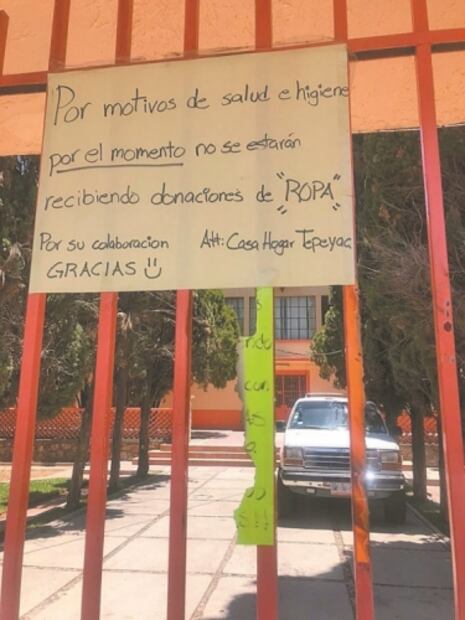 Por motivos de salud e higiene
por el momento no se estarán
recibiendo donaciones de "ROPA"
Por su colaboracion Att: Casa Hogar Tepeyac
GRACIAS